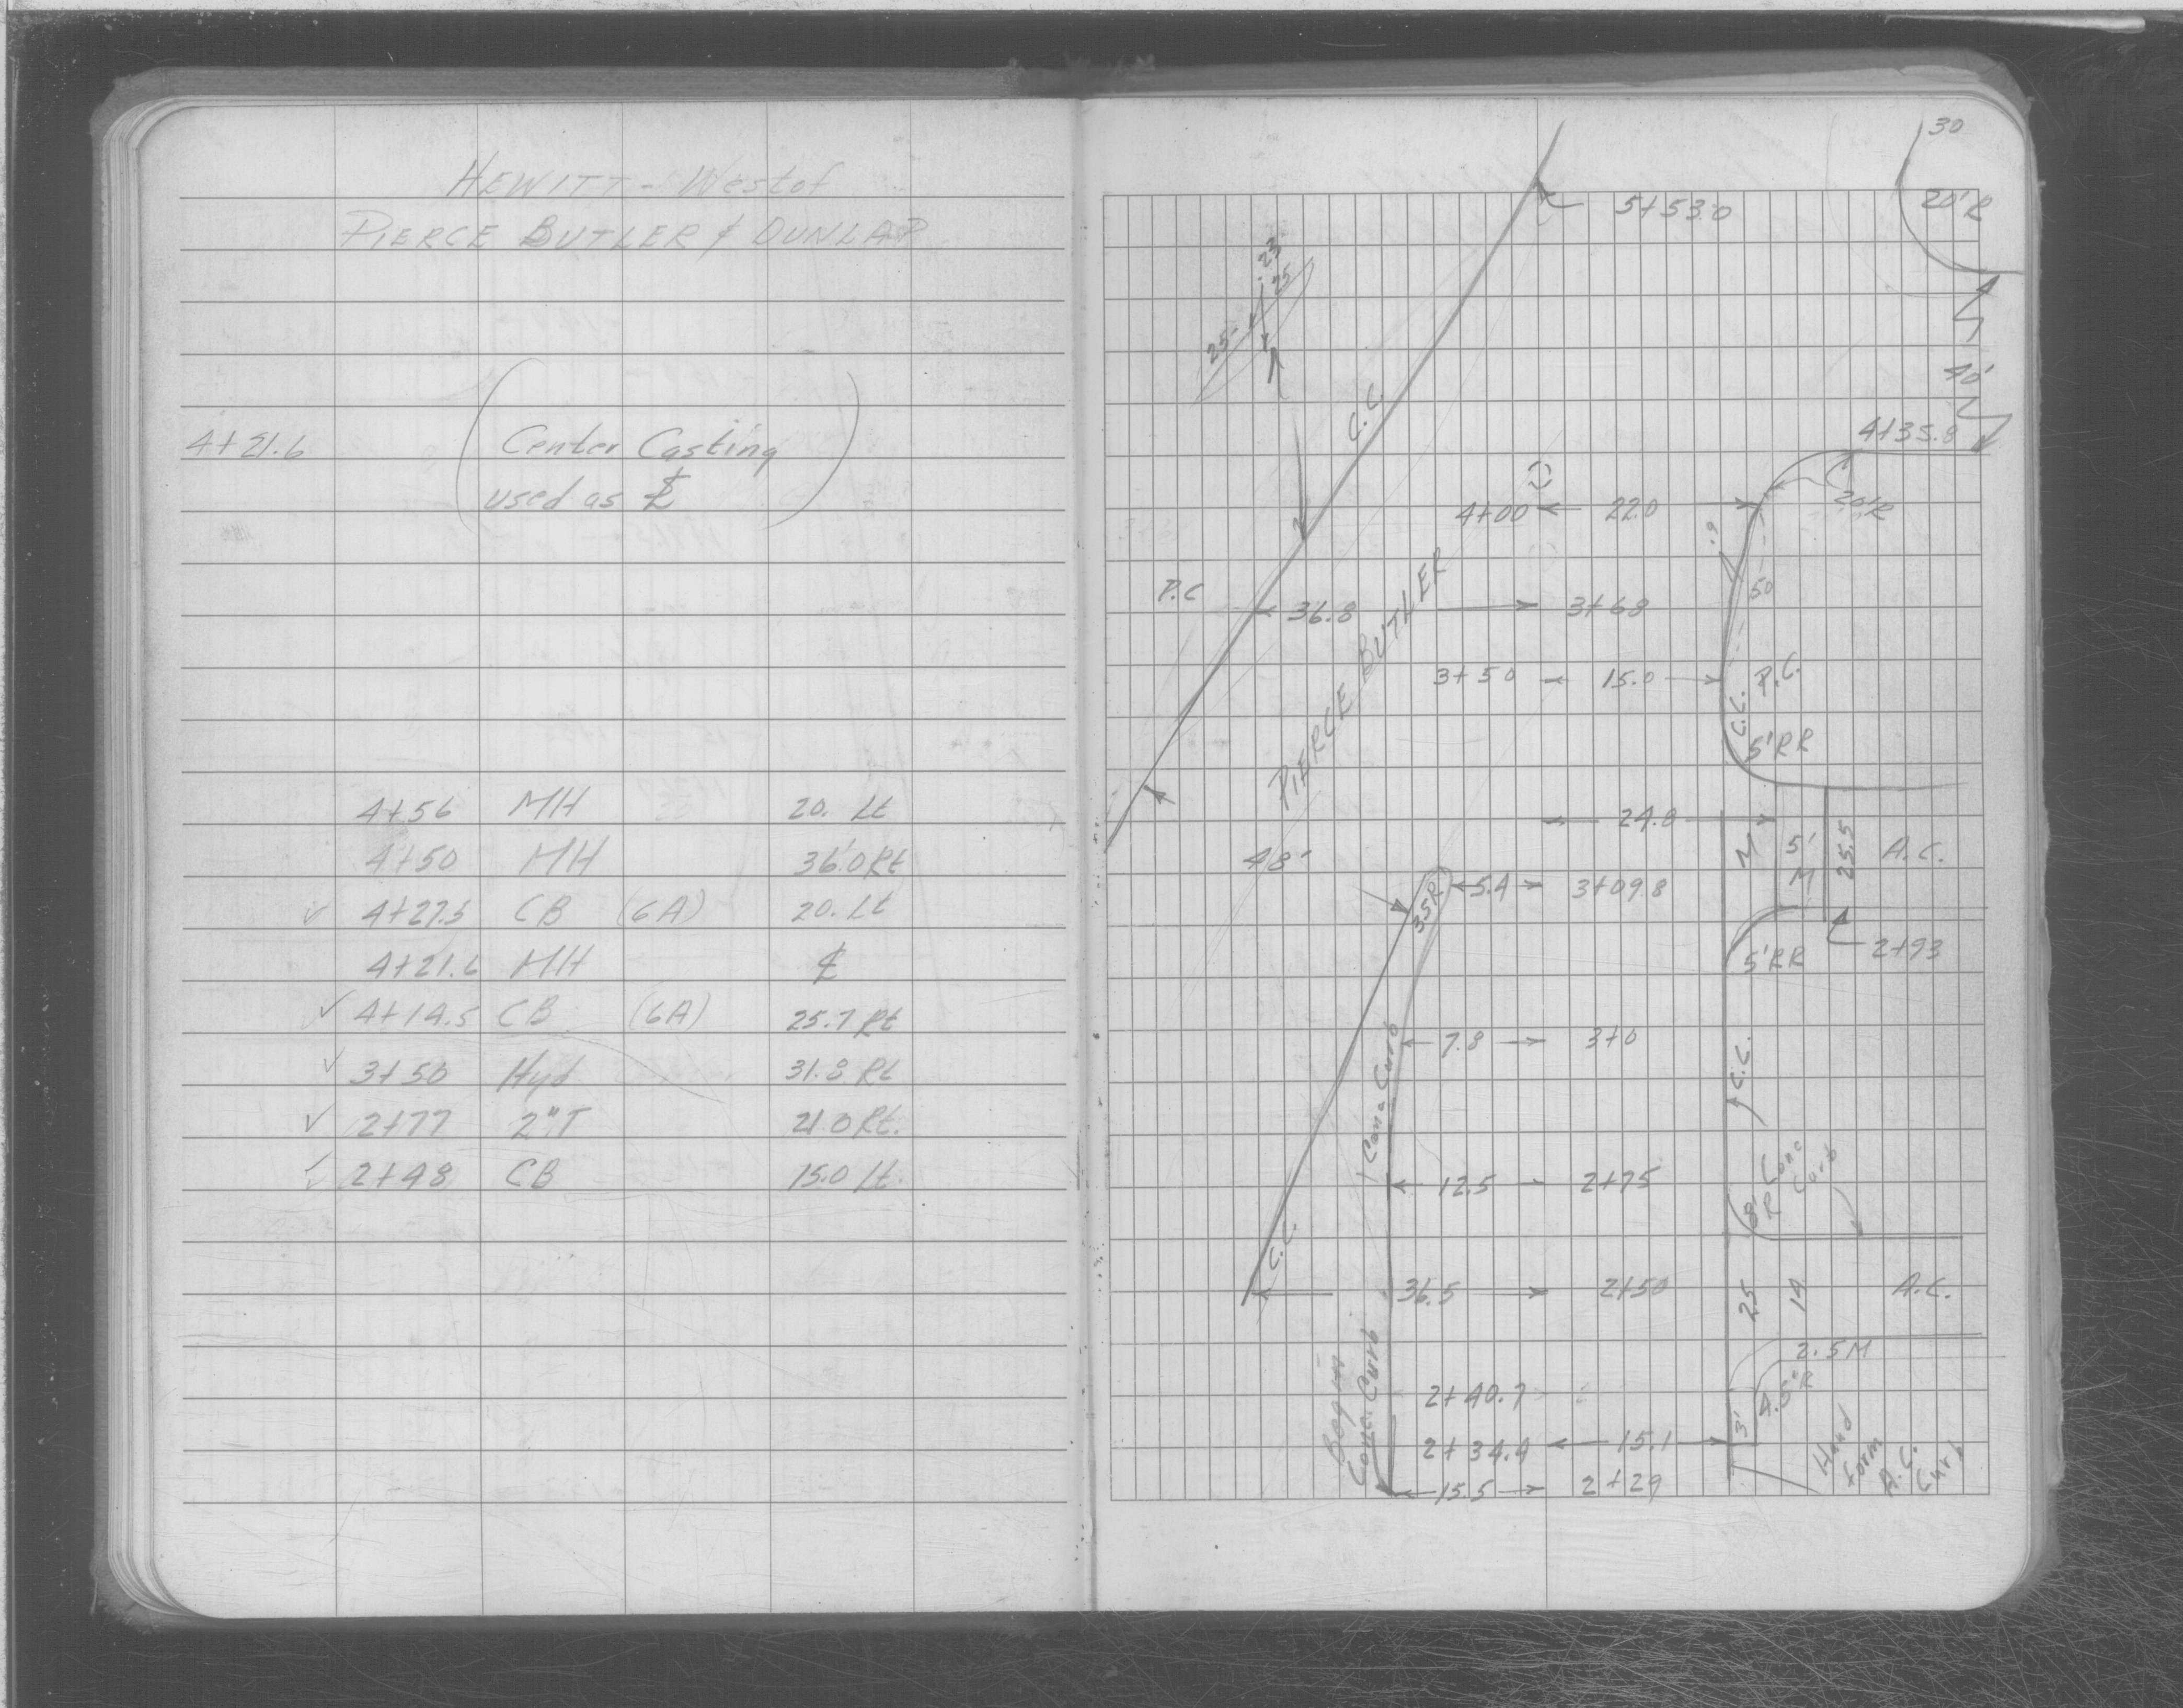 HEWITT - West of
PIERCE BUTLER & DUNLAP
4+21.6 (Center Casting
used as ℄)
4+56 MH 20. Lt
4+50 MH 36.0 Rt
✓ 4+27.5 CB (6A) 20. Lt
4+21.6 MH ℄
✓ 4+14.5 CB (6A) 25.7 Rt
✓ 3+50 Hyd 31.8 Rt
✓ 2+77 2"T 21.0 Rt.
✓ 2+48 CB 15.0 Lt.
30
5+53.0
20'R
23
25
25
40'
C.C.
4+35.8
4+00 22.0
20'R
.9
50
P.C
36.8 3+68
PIERCE BUTLER
3+50 15.0
P.C.
C.C.
5'RR
24.8
48'
M 5' M 25.5 A.C.
35R 5.4 3+09.8
5'RR
2+93
7.8 3+0
Conc Curb
C.C.
12.5 2+75
8' R
Conc
Curb
C.C.
36.5 2+50
25 14 A.C.
Begin
Conc. Curb
2.5M
2+40.7
4.5'R
2+34.4 15.1
3'
Hand
form
A.C.
Curb
15.5 2+29